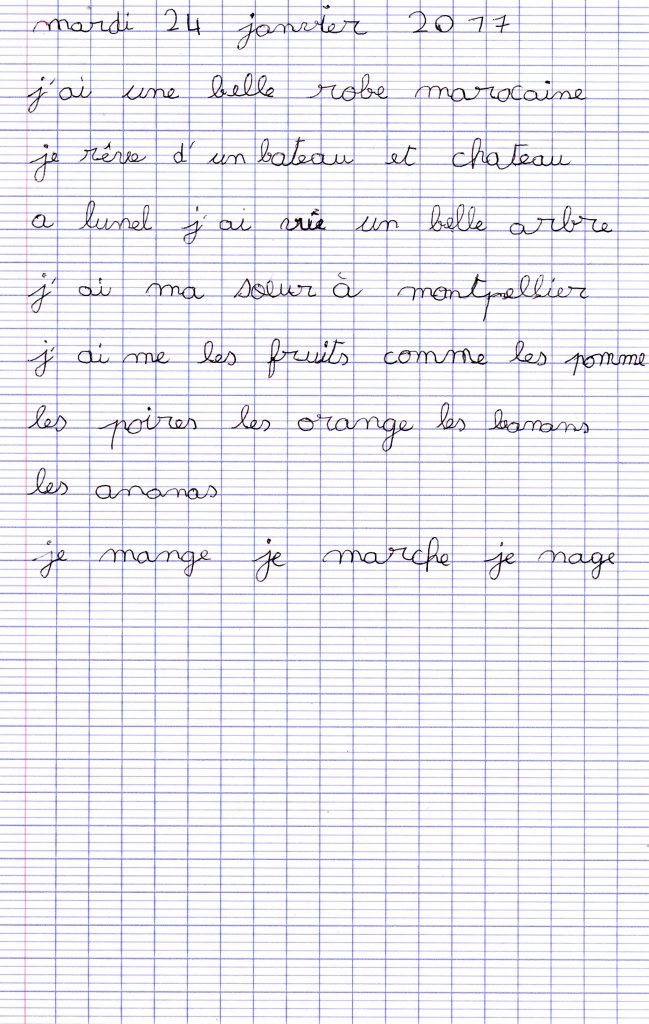 mardi 24 janvier 2017
j'ai une belle robe marocaine
je rêve d'un bateau et chateau
a lunel j'ai vûe un belle arbre
j'ai ma soeur à montpellier
j'ai me les fruits comme les pomme
les poires les orange les banans
les ananas
je mange je marche je nage